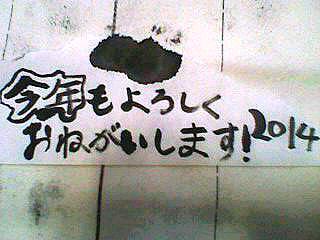 今年もよろしく
おねがいします!2014